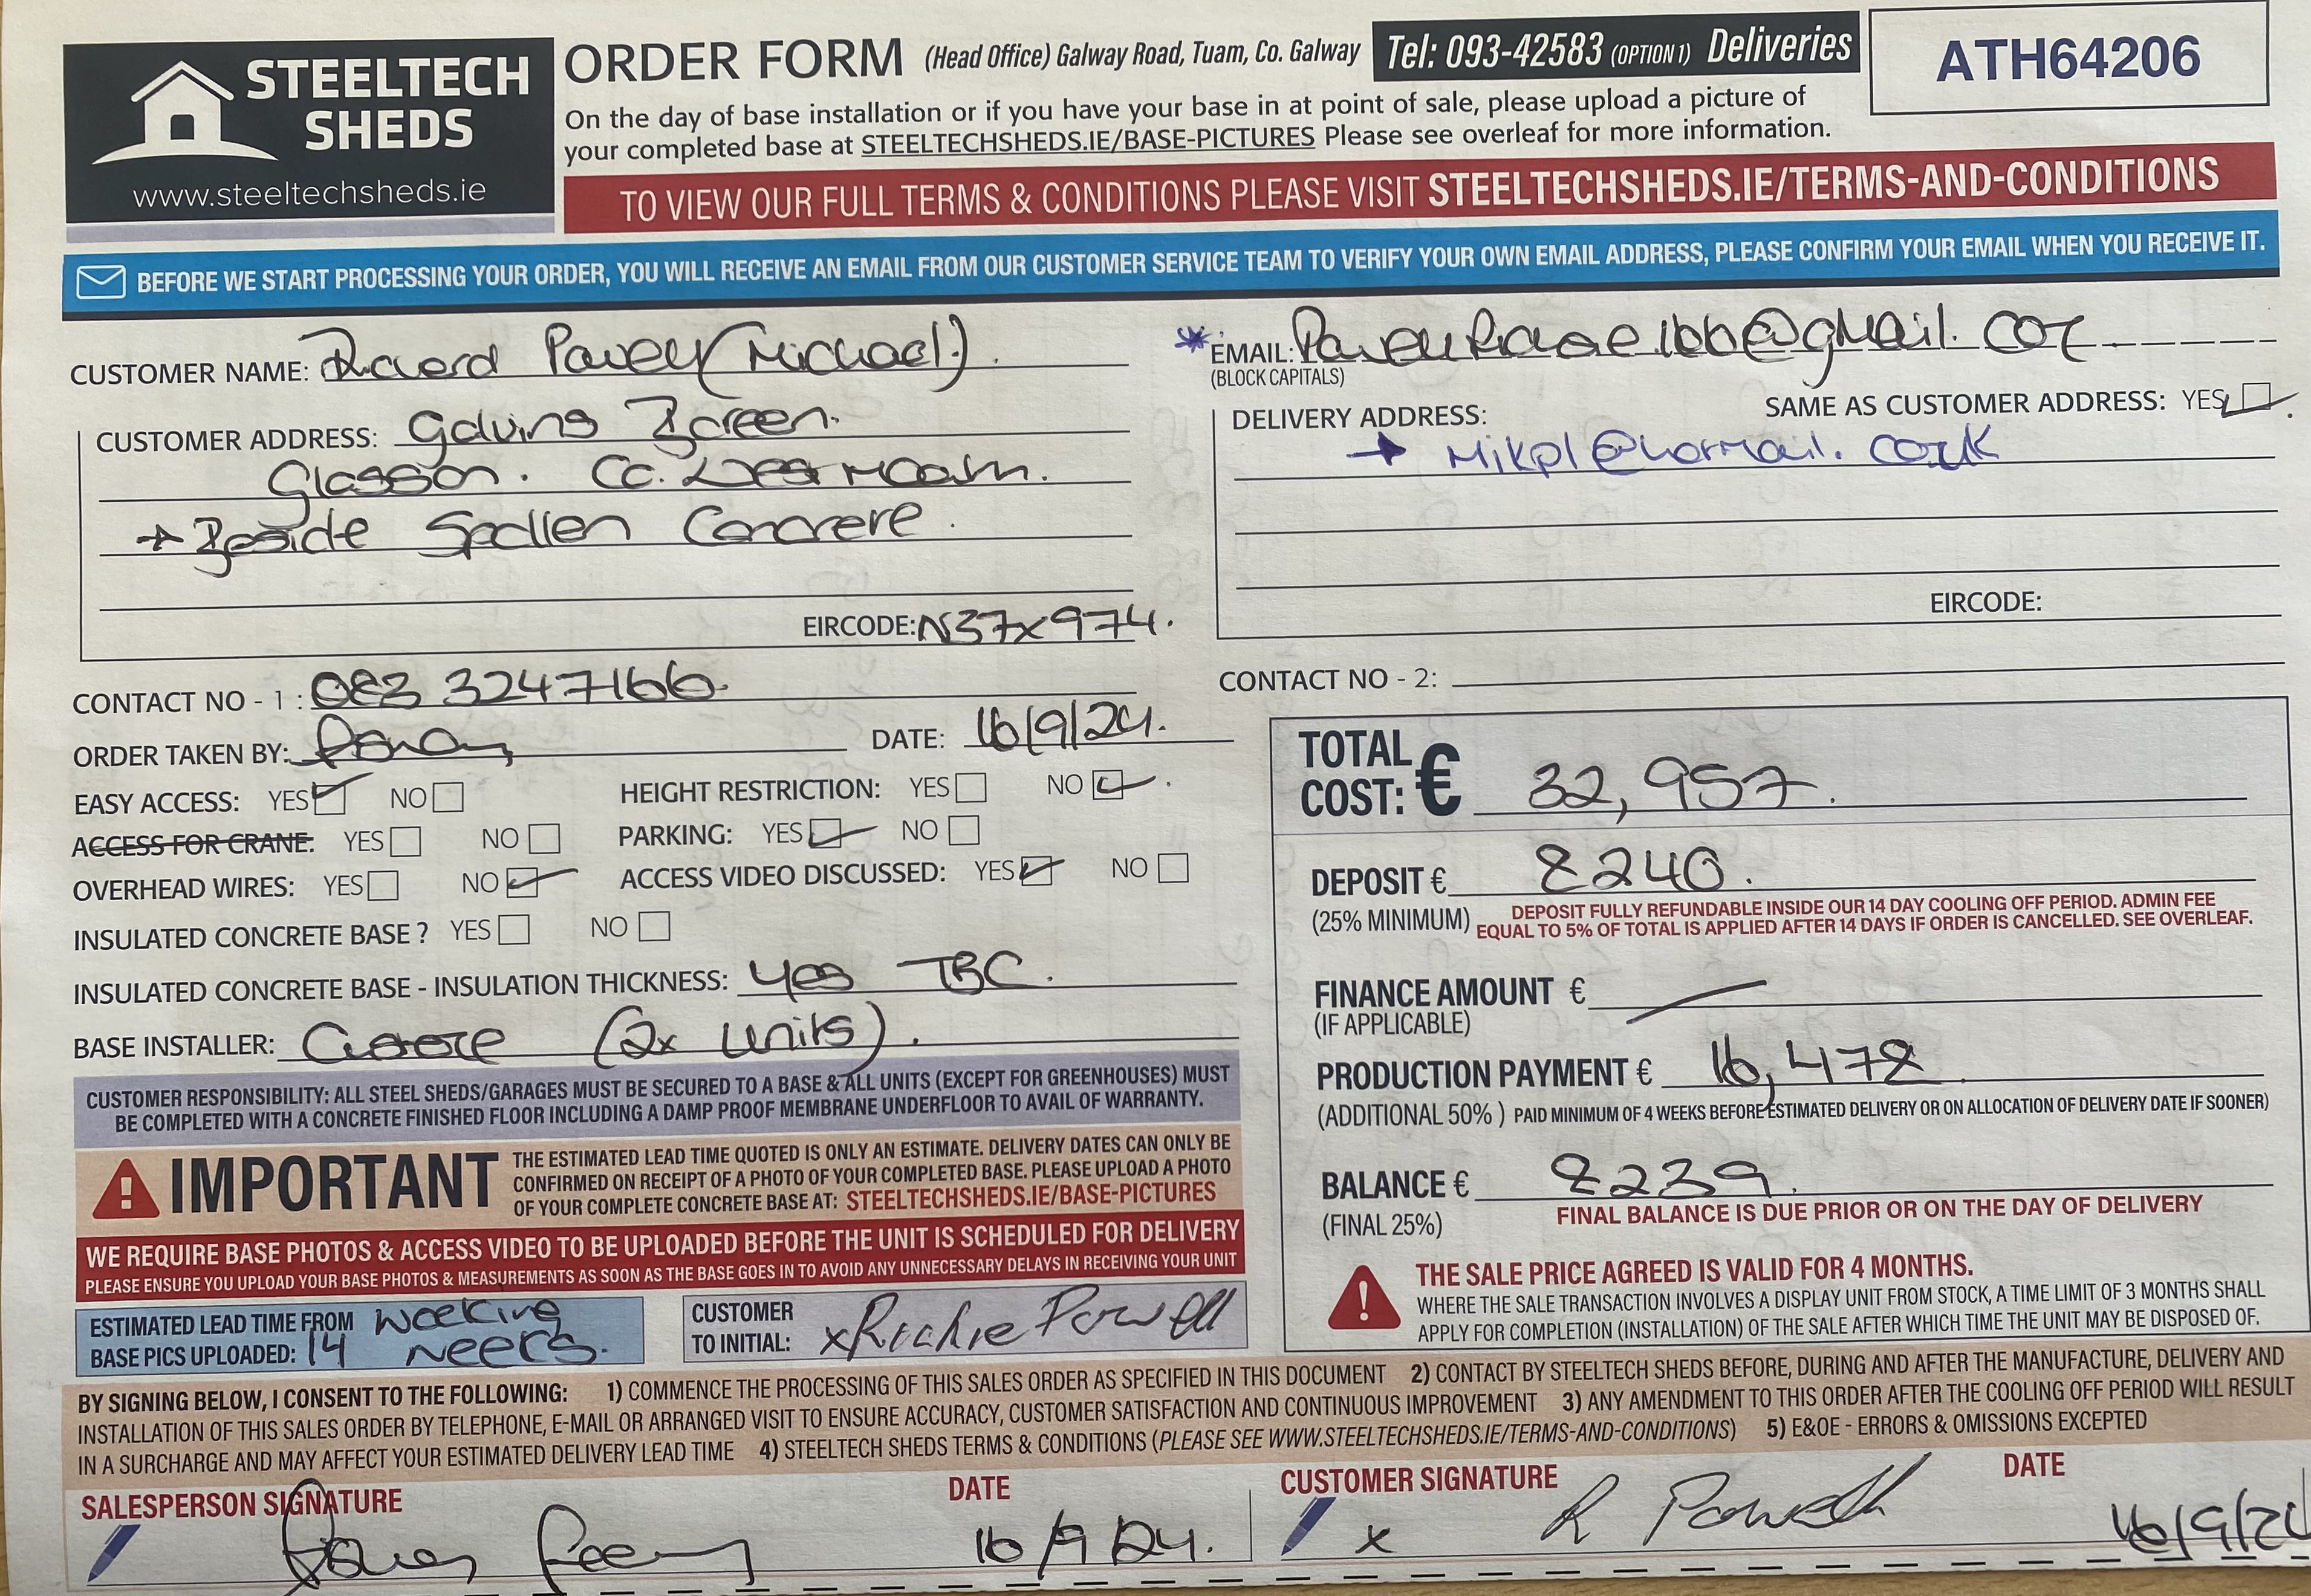 STEELTECH SHEDS
www.steeltechsheds.ie
ORDER FORM (Head Office) Galway Road, Tuam, Co. Galway Tel: 093-42583 (OPTION 1) Deliveries
ATH64206
On the day of base installation or if you have your base in at point of sale, please upload a picture of
your completed base at STEELTECHSHEDS.IE/BASE-PICTURES Please see overleaf for more information.
TO VIEW OUR FULL TERMS & CONDITIONS PLEASE VISIT STEELTECHSHEDS.IE/TERMS-AND-CONDITIONS
BEFORE WE START PROCESSING YOUR ORDER, YOU WILL RECEIVE AN EMAIL FROM OUR CUSTOMER SERVICE TEAM TO VERIFY YOUR OWN EMAIL ADDRESS, PLEASE CONFIRM YOUR EMAIL WHEN YOU RECEIVE IT.
CUSTOMER NAME: Powell (Michael).
CUSTOMER ADDRESS:
Glasson. Co. Westmeath.
→ Beside Spollen Concrete.
EIRCODE: N37X974.
*EMAIL:
(BLOCK CAPITALS)
DELIVERY ADDRESS: SAME AS CUSTOMER ADDRESS: YES
EIRCODE:
CONTACT NO - 1 : 083 3247166.
CONTACT NO - 2:
ORDER TAKEN BY: DATE: 16/9/24.
EASY ACCESS: YES NO HEIGHT RESTRICTION: YES NO
ACCESS FOR CRANE: YES NO PARKING: YES NO
OVERHEAD WIRES: YES NO ACCESS VIDEO DISCUSSED: YES NO
INSULATED CONCRETE BASE ? YES NO
INSULATED CONCRETE BASE - INSULATION THICKNESS: yes TBC.
BASE INSTALLER: (2x units).
CUSTOMER RESPONSIBILITY: ALL STEEL SHEDS/GARAGES MUST BE SECURED TO A BASE & ALL UNITS (EXCEPT FOR GREENHOUSES) MUST
BE COMPLETED WITH A CONCRETE FINISHED FLOOR INCLUDING A DAMP PROOF MEMBRANE UNDERFLOOR TO AVAIL OF WARRANTY.
IMPORTANT
THE ESTIMATED LEAD TIME QUOTED IS ONLY AN ESTIMATE. DELIVERY DATES CAN ONLY BE
CONFIRMED ON RECEIPT OF A PHOTO OF YOUR COMPLETED BASE. PLEASE UPLOAD A PHOTO
OF YOUR COMPLETE CONCRETE BASE AT: STEELTECHSHEDS.IE/BASE-PICTURES
WE REQUIRE BASE PHOTOS & ACCESS VIDEO TO BE UPLOADED BEFORE THE UNIT IS SCHEDULED FOR DELIVERY
PLEASE ENSURE YOU UPLOAD YOUR BASE PHOTOS & MEASUREMENTS AS SOON AS THE BASE GOES IN TO AVOID ANY UNNECESSARY DELAYS IN RECEIVING YOUR UNIT
ESTIMATED LEAD TIME FROM working
BASE PICS UPLOADED: 14 weeks.
CUSTOMER
TO INITIAL: x Richie Powell
TOTAL
COST: € 32,957.
DEPOSIT € 8240.
(25% MINIMUM) DEPOSIT FULLY REFUNDABLE INSIDE OUR 14 DAY COOLING OFF PERIOD. ADMIN FEE
EQUAL TO 5% OF TOTAL IS APPLIED AFTER 14 DAYS IF ORDER IS CANCELLED. SEE OVERLEAF.
FINANCE AMOUNT €
(IF APPLICABLE)
PRODUCTION PAYMENT € 16,478
(ADDITIONAL 50% ) PAID MINIMUM OF 4 WEEKS BEFORE ESTIMATED DELIVERY OR ON ALLOCATION OF DELIVERY DATE IF SOONER)
BALANCE € 8239.
(FINAL 25%) FINAL BALANCE IS DUE PRIOR OR ON THE DAY OF DELIVERY
THE SALE PRICE AGREED IS VALID FOR 4 MONTHS.
WHERE THE SALE TRANSACTION INVOLVES A DISPLAY UNIT FROM STOCK, A TIME LIMIT OF 3 MONTHS SHALL
APPLY FOR COMPLETION (INSTALLATION) OF THE SALE AFTER WHICH TIME THE UNIT MAY BE DISPOSED OF.
BY SIGNING BELOW, I CONSENT TO THE FOLLOWING: 1) COMMENCE THE PROCESSING OF THIS SALES ORDER AS SPECIFIED IN THIS DOCUMENT 2) CONTACT BY STEELTECH SHEDS BEFORE, DURING AND AFTER THE MANUFACTURE, DELIVERY AND
INSTALLATION OF THIS SALES ORDER BY TELEPHONE, E-MAIL OR ARRANGED VISIT TO ENSURE ACCURACY, CUSTOMER SATISFACTION AND CONTINUOUS IMPROVEMENT 3) ANY AMENDMENT TO THIS ORDER AFTER THE COOLING OFF PERIOD WILL RESULT
IN A SURCHARGE AND MAY AFFECT YOUR ESTIMATED DELIVERY LEAD TIME 4) STEELTECH SHEDS TERMS & CONDITIONS (PLEASE SEE WWW.STEELTECHSHEDS.IE/TERMS-AND-CONDITIONS) 5) E&OE - ERRORS & OMISSIONS EXCEPTED
SALESPERSON SIGNATURE DATE 16/9/24.
CUSTOMER SIGNATURE x R Powell DATE 16/9/24